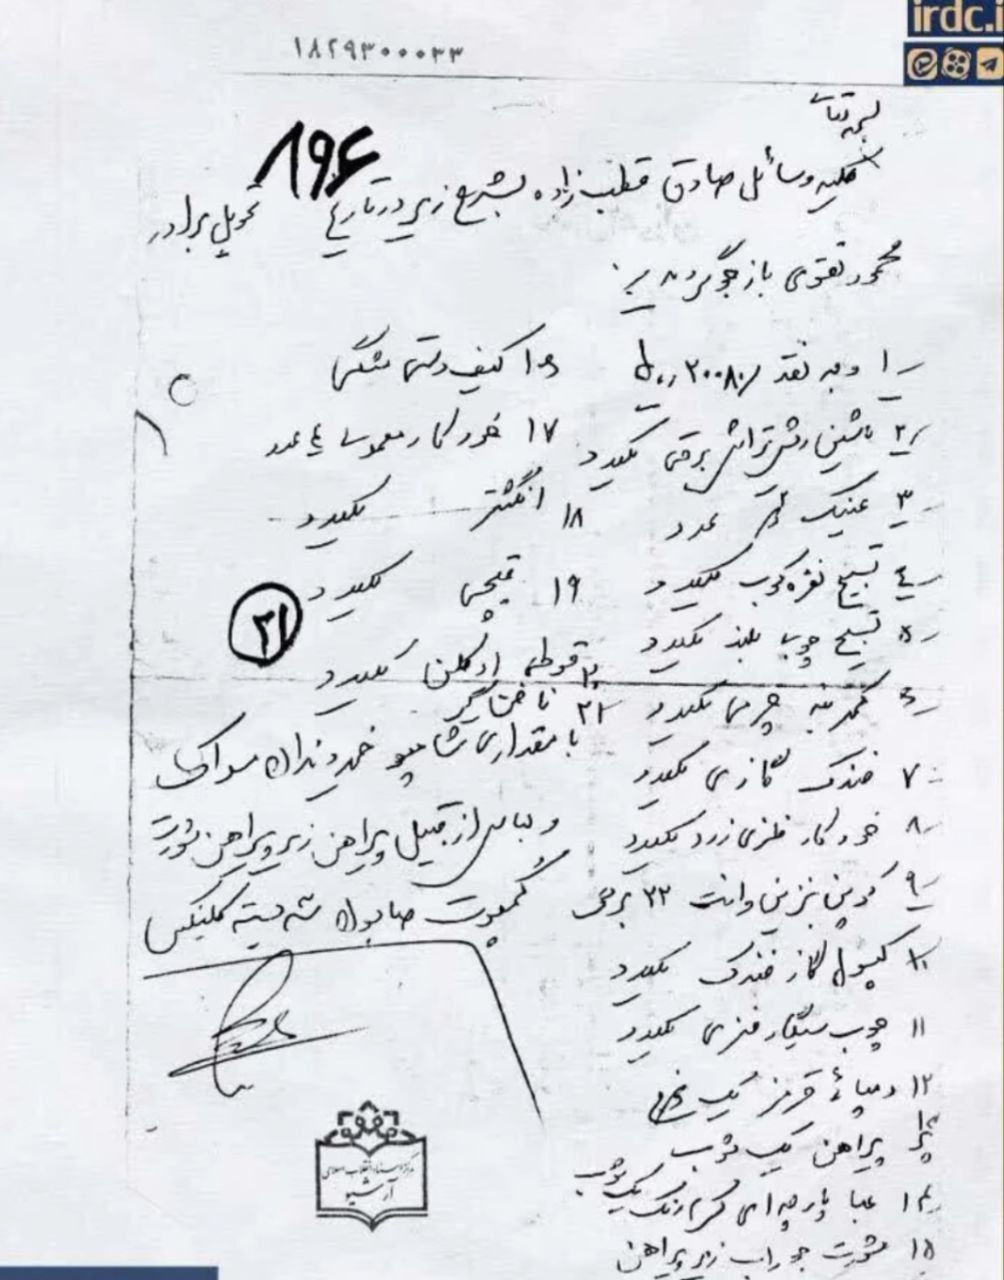 irdc.i
۱۸۲۹۳۰۰۰۳۳
بسمه تعالی
۸۹۶
کلیه وسائل صادق قطب زاده بشرح زیر در تاریخ تحویل برادر
محمود تقوی بازجو گردید
۱ وجه نقد ۲۰۰۸۰ ریال
۲ ماشین ریش تراش برقی یکعدد
۳ عینک عدد
۴ تسبیح نقره کوب یکعدد
۵ تسبیح چوب بلند یکعدد
۶ کمربند چرمی یکعدد
۷ فندک گازی یکعدد
۸ خودکار فلزی زرد یکعدد
۹ کوپن بنزین وانت ۲۲ برگی
۱۰ کپسول گاز فندک یکعدد
۱۱ چوب سیگار فنری یکعدد
۱۲ دمپائی قرمز یک زوج
۱۳ پیراهن یک ثوب
۱۴ عبا پارچه ای کرم رنگ یک ثوب
۱۵ شورت جوراب زیر پیراهن
۱۶ کیف دستی مشکی
۱۷ خودکار معمولی ۴ عدد
۱۸ انگشتر یکعدد
۱۹ قیچی یکعدد
۲۰ قوطی ادکلن یکعدد
۲۱ ناخن گیر
با مقداری شامپو خمیردندان مسواک
و لباس از قبیل پیراهن زیرپیراهن شورت
کمپوت صابون شه دسته کلینکس
۳۱
مرکز اسناد انقلاب اسلامی
آرشیو